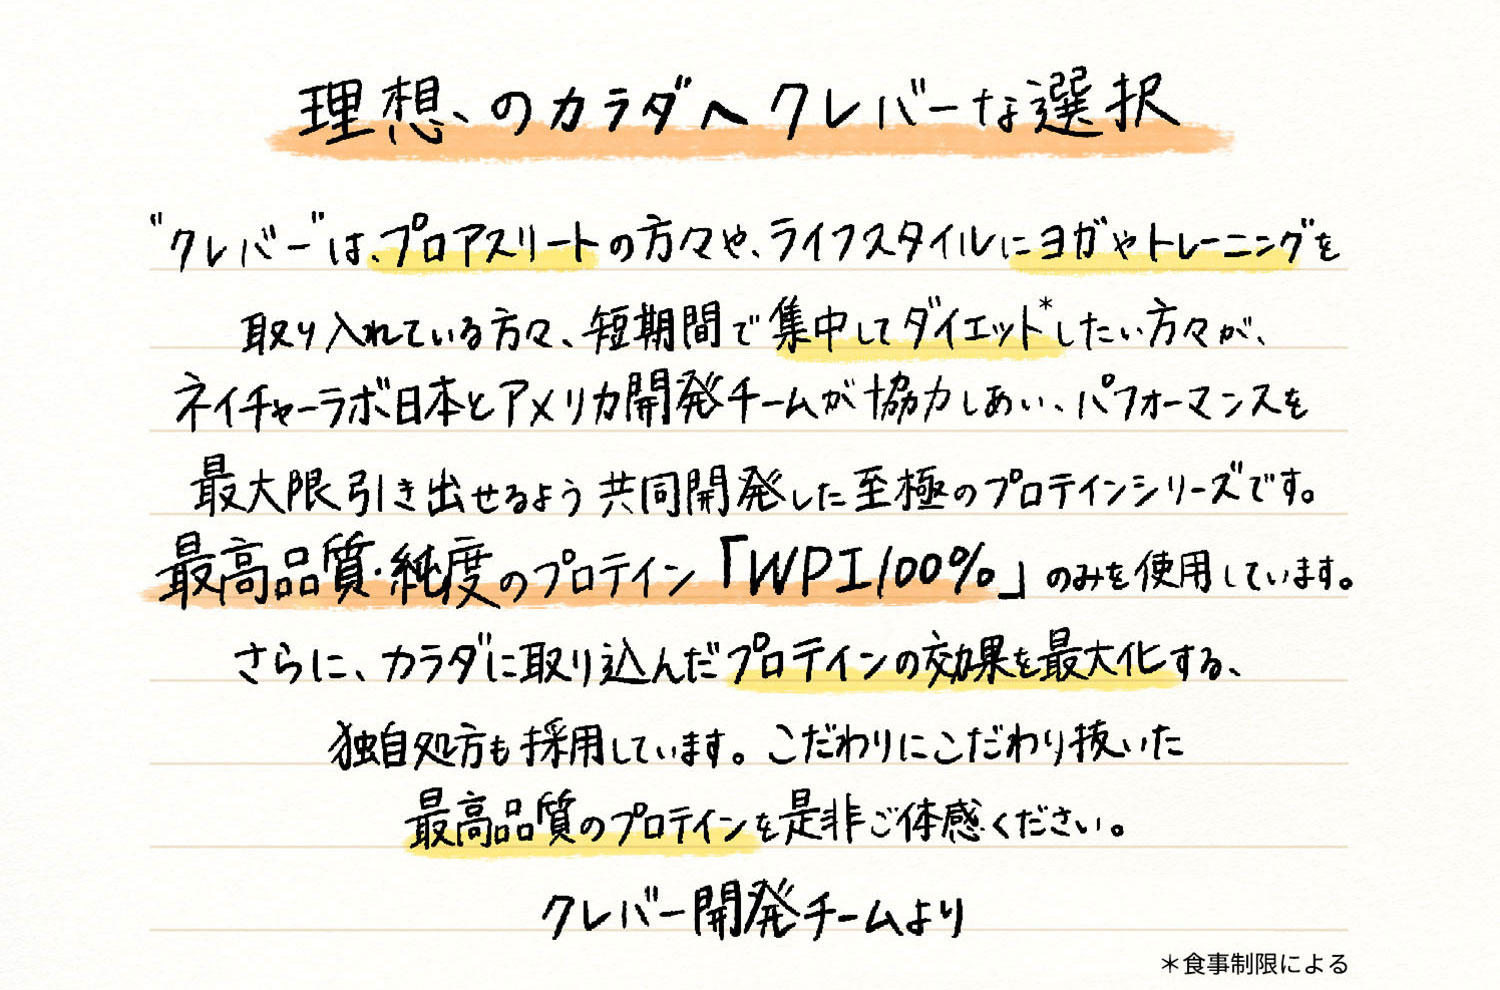 理想のカラダへクレバーな選択
"クレバー"は、プロアスリートの方々や、ライフスタイルにヨガやトレーニングを
取り入れている方々、短期間で集中してダイエット*したい方々が、
ネイチャーラボ日本とアメリカ開発チームが協力しあい、パフォーマンスを
最大限引き出せるよう共同開発した至極のプロテインシリーズです。
最高品質・純度のプロテイン「WPI100%」のみを使用しています。
さらに、カラダに取り込んだプロテインの効果を最大化する、
独自処方も採用しています。こだわりにこだわり抜いた
最高品質のプロテインを是非ご体感ください。
クレバー開発チームより
＊食事制限による